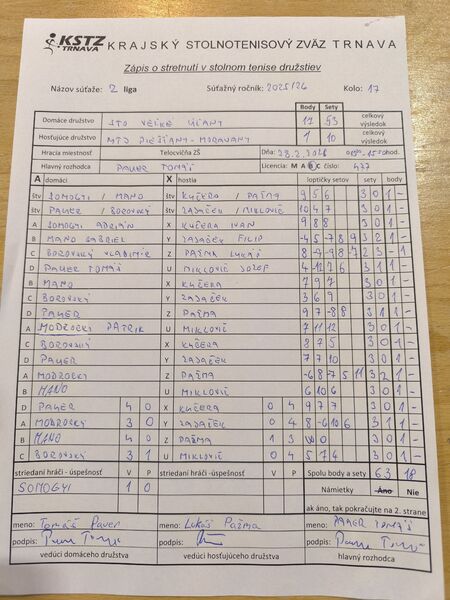 KSTZ TRNAVA KRAJSKÝ STOLNOTENISOVÝ ZVÄZ TRNAVA
Zápis o stretnutí v stolnom tenise družstiev
Názov súťaže: 2 liga Súťažný ročník: 2025/26 Kolo: 17
Body Sety
Domáce družstvo STO VEĽKÉ ÚĽANY 17 53 celkový výsledok
Hosťujúce družstvo MTJ PIEŠŤANY-MORAVANY 1 10 celkový výsledok
Hracia miestnosť Telocvičňa ZŠ Dňa: 28.2.2026 hod.
Hlavný rozhodca PAVER TOMÁŠ Licencia: M A B C číslo: 427
A domáci X hostia loptičky setov sety body
štv SOMOGYI / MANO štv KUČERA / PAŽMA 9 5 6 3 0 1 -
štv PAVER / BOROVSKÝ štv ZAJAČEK / MIKLOVIČ 10 4 7 3 0 1 -
A SOMOGYI ADRIÁN X KUČERA IVAN 9 8 8 3 0 1 -
B MANO GABRIEL Y ZAJAČEK FILIP -4 5 -7 8 9 3 2 1 -
C BOROVSKÝ VLADIMÍR Z PAŽMA LUKÁŠ 2 3 - 1
D PAVER TOMÁŠ U MIKLOVIČ JOZEF 4 -12 7 6 3 1 1 -
B MANO X KUČERA 7 9 7 3 0 1 -
C BOROVSKÝ Y ZAJAČEK 3 6 9 3 0 1 -
D PAVER Z PAŽMA 9 7 -8 8 3 1 1 -
A MODROCKÝ PATRIK U MIKLOVIČ 7 11 12 3 0 1 -
C BOROVSKÝ X KUČERA 8 7 5 3 0 1 -
D PAVER Y ZAJAČEK 7 7 10 3 0 1 -
A MODROCKÝ Z PAŽMA -6 8 -7 5 11 3 2 1 -
B MANO U MIKLOVIČ 6 10 6 3 0 1 -
D PAVER 4 0 X KUČERA 0 4 9 7 7 3 0 1 -
A MODROCKÝ 3 0 Y ZAJAČEK 0 4 8 -6 10 6 3 1 1 -
B MANO 4 0 Z PAŽMA 1 3 3 0 1 -
C BOROVSKÝ 3 1 U MIKLOVIČ 0 4 5 7 4 3 0 1 -
striedaní hráči - úspešnosť V P striedaní hráči - úspešnosť V P Spolu body a sety 63 18
SOMOGYI 1 0 Námietky Áno Nie
ak áno, tak pokračujte na 2. strane
meno: Tomáš Paver meno: Lukáš Pažma meno: PAVER TOMÁŠ
podpis: podpis: podpis:
vedúci domáceho družstva vedúci hosťujúceho družstva hlavný rozhodca